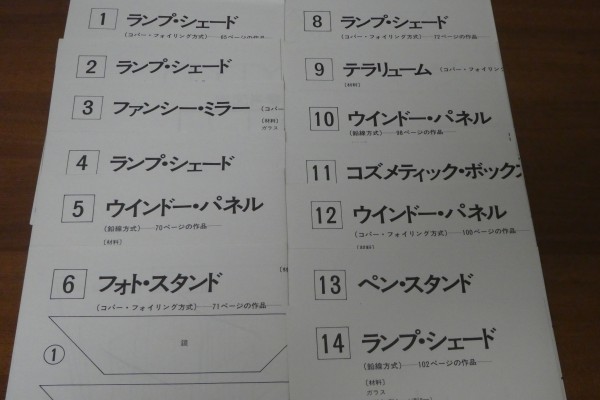 1 ランプ・シェード
(コパー・フォイリング方式)
2 ランプ・シェード
3 ファンシー・ミラー (コパー・
[材料]
ガラス
4 ランプ・シェード
5 ウインドー・パネル
(鉛線方式)──70ページの作品──
[材料]
6 フォト・スタンド
(コパー・フォイリング方式)──71ページの作品──
①
鏡
8 ランプ・シェード
(コパー・フォイリング方式)──72ページの作品──
9 テラリューム (コパー・フォイリング
[材料]
10 ウインドー・パネル
(鉛線方式)──98ページの作品──
11 コズメティック・ボックス
12 ウインドー・パネル
(コパー・フォイリング方式)──100ページの作品──
[材料]
13 ペン・スタンド
14 ランプ・シェード
(鉛線方式)──102ページの作品──
[材料]
ガラス